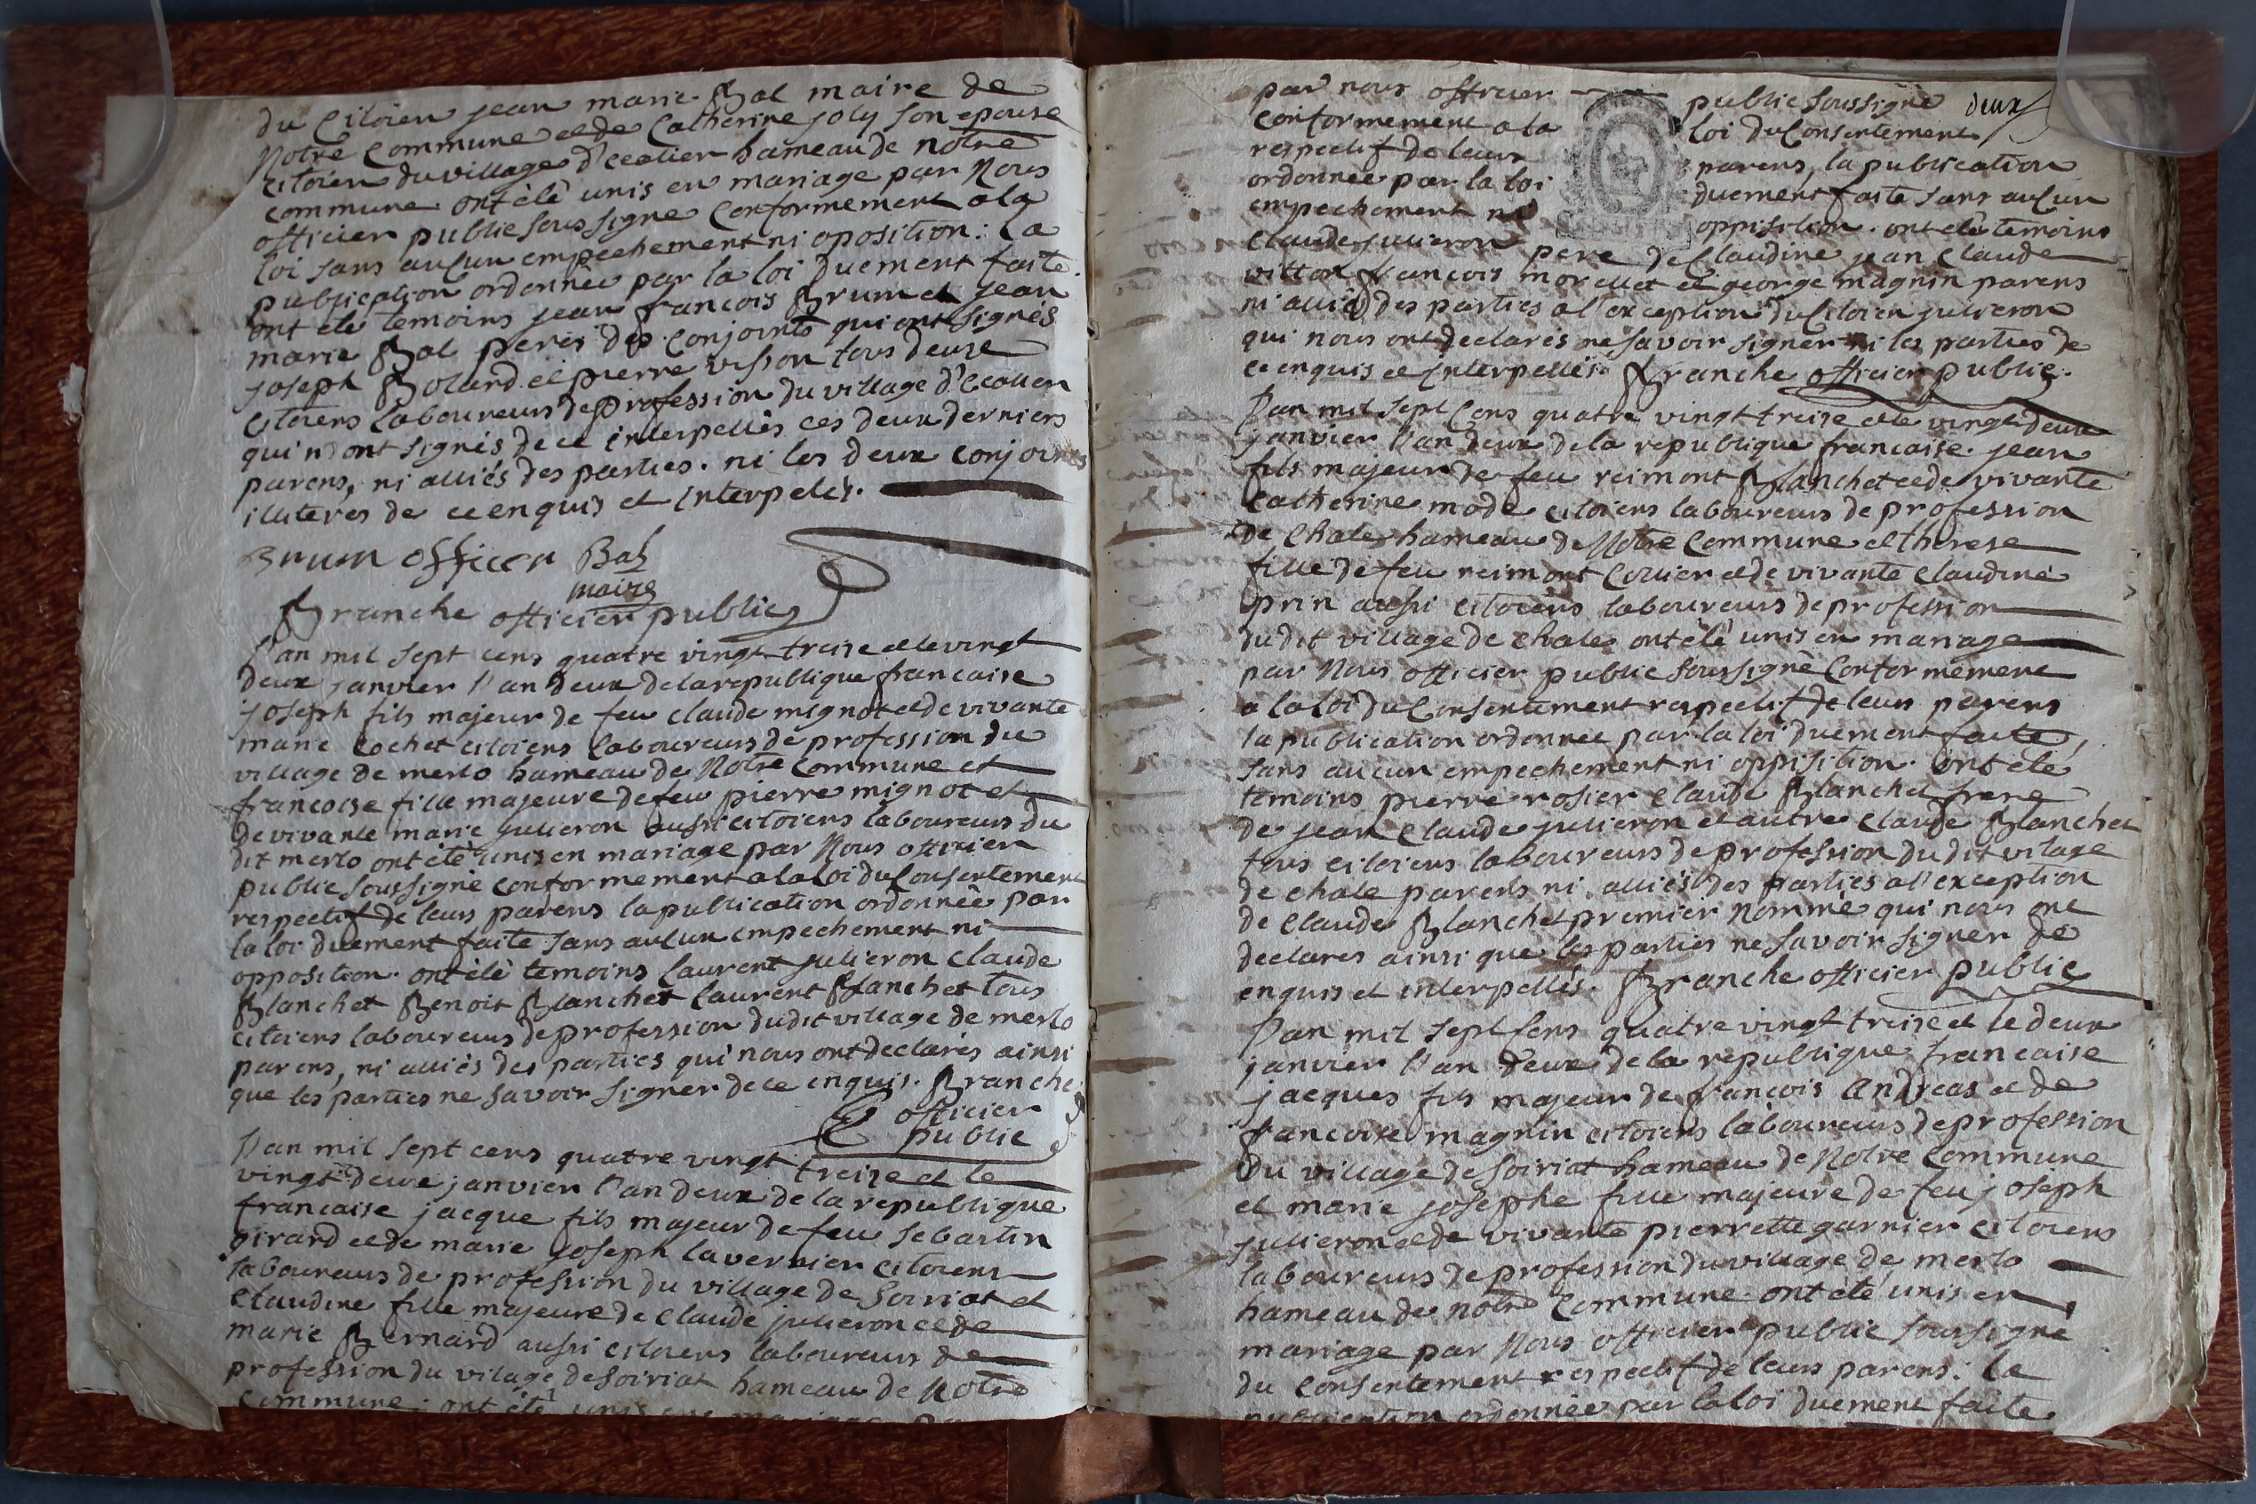 du Citoien jean marie Bal maire de
Notre Commune et de Catherine joly son epouse
Citoien du village d'ecotier hameau de notre
commune ont été unis en mariage par Nous
officier public soussigné Conformement a la
loi sans aucun empechement ni oposition : la
publication ordonnée par la loi duement faite.
ont eté temoins jean francois Brun et jean
marie Bal peres des conjoints qui ont signés
joseph Bolard et pierre visson tous deux
Citoiens laboureurs de profession du village d'
qui n'ont signés de ce interpellés ces deux derniers
parens, ni alliés des parties. ni les deux conjoints
illiteres de ce enquis et interpelés.
Brun officer Bal
maire
Branche officier public
L'an mil sept cens quatre vingt treize et le vingt
deux janvier l'an deux de la republique francaise
joseph fils majeur de feu claude mignot et de vivante
marie Cochet citoiens laboureurs de profession du
village de merlo hameau de Notre Commune et
francoise fille majeure de feu pierre mignot et
de vivante marie julieron aussi citoiens laboureurs du
dit merlo ont été unis en mariage par Nous officier
public soussigné conformement a la loi du Consentement
respectif de leurs parens la publication ordonnée par
la loi duement faite sans aucun empechement ni
opposition. ont été temoins laurent julieron Claude
Blanchet Benoit Blanchet laurent Blanchet tous
citoiens laboureurs de profession dudit village de merlo
parens, ni alliés des parties qui nous ont declarés ainsi
que les parties ne savoir signer de ce enquis. Branche
officier
public
L'an mil sept cens quatre vingt treize et le
vingt deux janvier l'an deux de la republique
francaise jacque fils majeur de feu sebastin
girard et de marie joseph lavernier citoiens
laboureurs de profession du village de Soiriat et
Claudine fille majeure de Claude julieron et de
marie Bernard aussi citoiens laboureurs de
profession du vilage de soiriat hameau de Notre
Commune. ont été unis en mariage
par nous officier public soussigné deux
conformement a la loi du Consentement
respectif de leurs parens, la publication
ordonnée par la loi duement faite sans aucun
empechement ni oppisition. ont été temoins
Claude julieron pere de Claudine jean Claude
vitton francois morellet et george magnin parens
ni alliés des parties a l'exception du Citoien julieron
qui nous ont declarés ne savoir signer ni les parties de
ce enquis et interpellés. Branche officier public.
L'an mil sept Cens quatre vingt treize et le vingt deux
janvier l'an deux de la republique francaise. jean
fils majeur de feu reimont Blanchet et de vivante
Catherine mode citoiens laboureurs de profession
de Chale hameau de Notre Commune et therese
fille de feu reimont Collier et de vivante Claudine
prin aussi citoiens laboureurs de profession
du dit village de chale ont été unis en mariage
par Nous officier public soussigné Conformément
a la loi du Consentement respectif de leurs parens
la publication ordonnée par la loi duement faite,
sans aucun empechement ni oppisition. ont eté
temoins pierre rosier Claude Blanchet frere
de jean Claude julieron et autre Claude Blanchet
tous citoiens laboureurs de profession du dit vilage
de chale parens ni alliés des parties a l'exception
de Claude Blanchet premier Nommé qui nous ont
declares ainsi que les parties ne savoir signer de
enquis et interpellés. Branche officier public
L'an mil sept Cens quatre vingt treize et le deux
janvier l'an deux de la republique francaise
jacques fils majeur de francois Andreas et de
francoise magnin citoiens laboureurs de profession
du village de soiriat hameau de Notre Commune
et marie josephe fille majeure de feu joseph
julieron et de vivante pierrette garnier citoiens
laboureurs de profession du village de merlo
hameau de notre Commune. ont été unis en
mariage par Nous officier public soussigné
du Consentement respectif de leurs parens. la
publication ordonnée par la loi duement faite